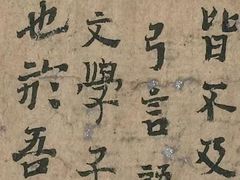 皆不及
弓言語
文學子
也於吾